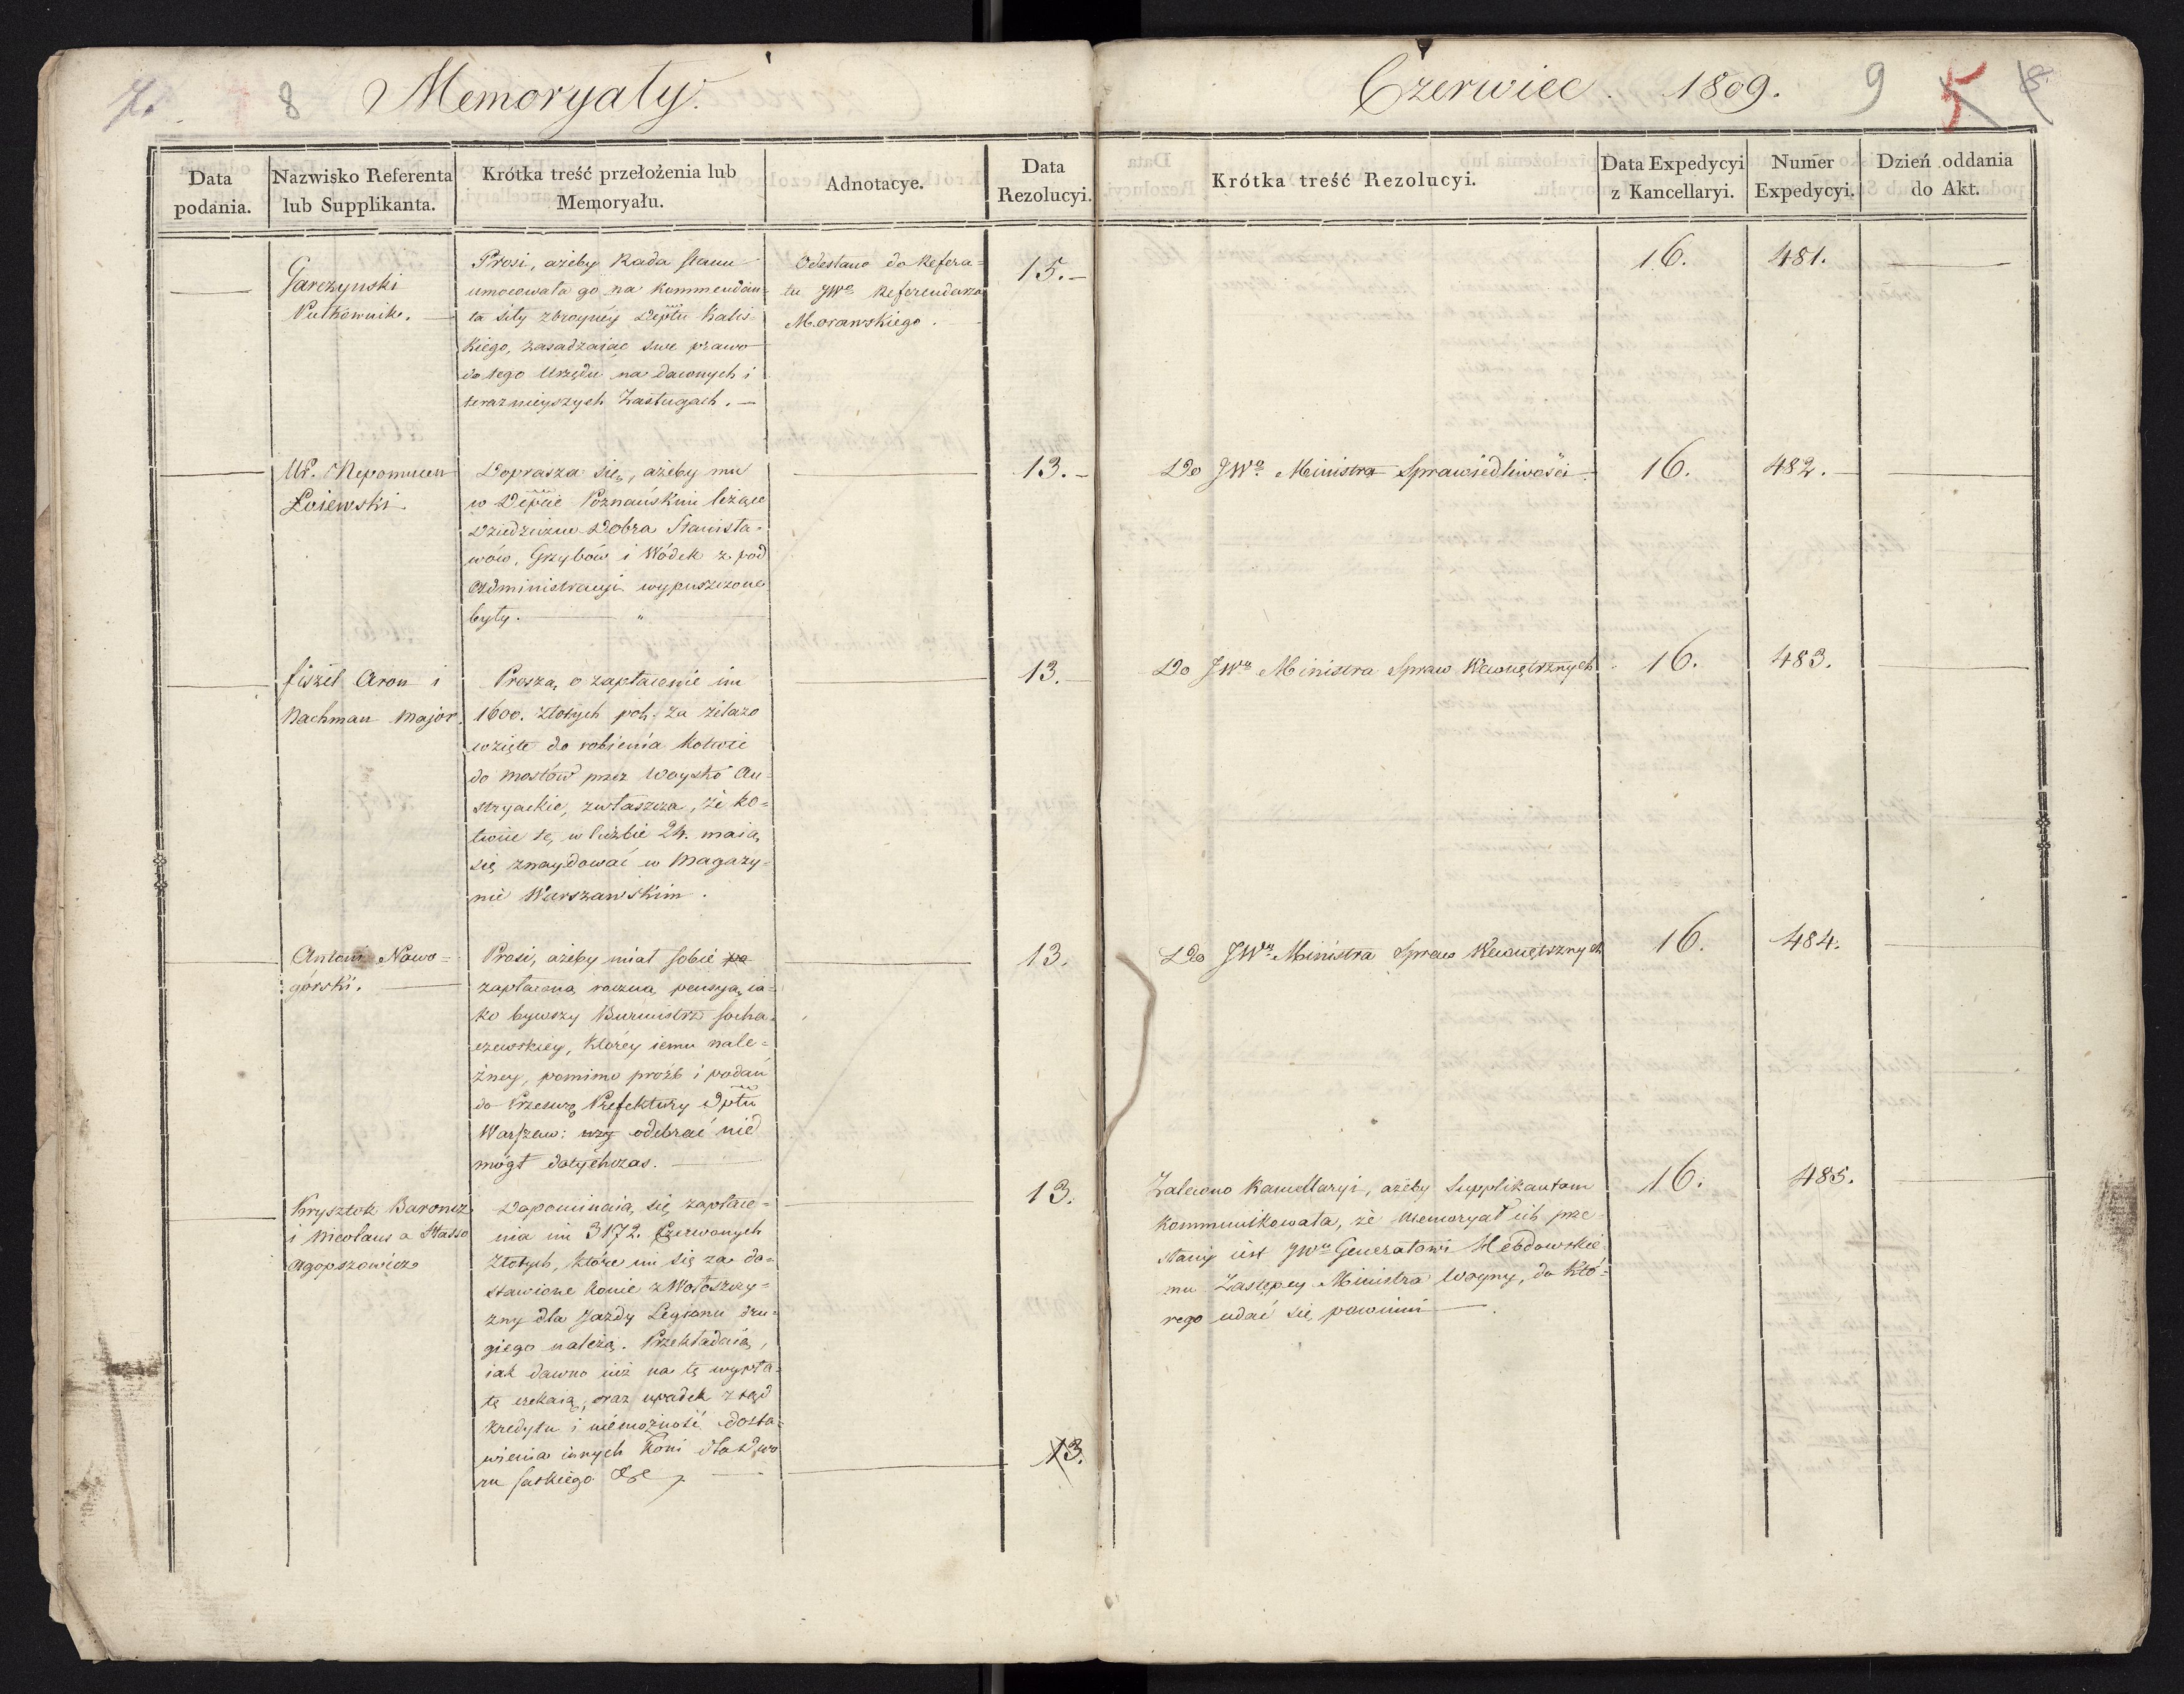 8 Memoryały.
Czerwiec. 1809. 9 5 8.
Data podania.
Nazwisko Referenta lub Supplikanta.
Krótka treść przełożenia lub Memoryału.
Adnotacye.
Data Rezolucyi.
Krótka treść Rezolucyi.
Data Expedycyi z Kancellaryi.
Numer Expedycyi.
Dzień oddania do Akt.
Garczynski
Pułkownik.
Prosi, ażeby Rada stanu
umocowała go na kommendan=
ta siły zbroyney Deptu Kalis=
kiego, zasadzaiąc swe prawo
do tego Urzędu na dawnych i
teraznieyszych Zasługach. —
Odesłano do Refera=
tu JWo Referendarza
Morawskiego.
15. —
16.
481.
Ur. Nepomucen
Łoiewski.
Doprasza się, ażeby mu
w Depcie Poznańskim leżące
Dziedziczne Dobra Stanisła=
wów, Grzybów i Wódek z pod
Administracyi wypuszczone
były. — " —
13. —
Do JWo Ministra Sprawiedliwości.
16.
482. —
Fiszel Aron i
Nachman Major.
Proszą o zapłacenie im
1600. Złotych pol. za żelazo
wzięte do robienia kotwic
do mostów przez Woysko Au=
stryackie, zwłaszcza, że ko=
twice te, w liczbie 24. maią
się znaydować w Magazy=
nie Warszawskim.
13. —
Do JWo Ministra Spraw Wewnętrznych
16.
483.
Antoni Nowo=
górski. —
Prosi, ażeby miał sobie pa
zapłaconą roczną pensyą, ia=
ko bywszy Burmistrz socha=
czewskiey, którey iemu nale=
żney, pomimo proźb i podań
do Prześw. Prefektury Dptu
Warszaw: odebrać nie
mógł dotychczas. —
13.
Do JWo Ministra Spraw Wewnętrznych
16.
484.
Krysztof Baroncz
i Nicolaus a Stasso
Agopszowicz
Dopominaią się zapłace=
nia im 3172. Czerwonych
Złotych, które im się za do=
stawione konie z Wołoszczy=
zny dla Jazdy Legionu dru=
giego należą. Przekładaią,
iak dawno iuż na tę wypła=
tę czekaią, oraz upadek ztąd
kredytu i niemożność dosta=
wienia innych koni dla Dwo=
ru saskiego
13.
Zalecono Kancellaryi, ażeby Supplikantom
kommunikowała, że Memoryał ich prze=
słany iest JWo Generałowi Hebdowskie
mu Zastępcy Ministra Woyny, do któ=
rego udać się powinni — .
16.
485.
13.